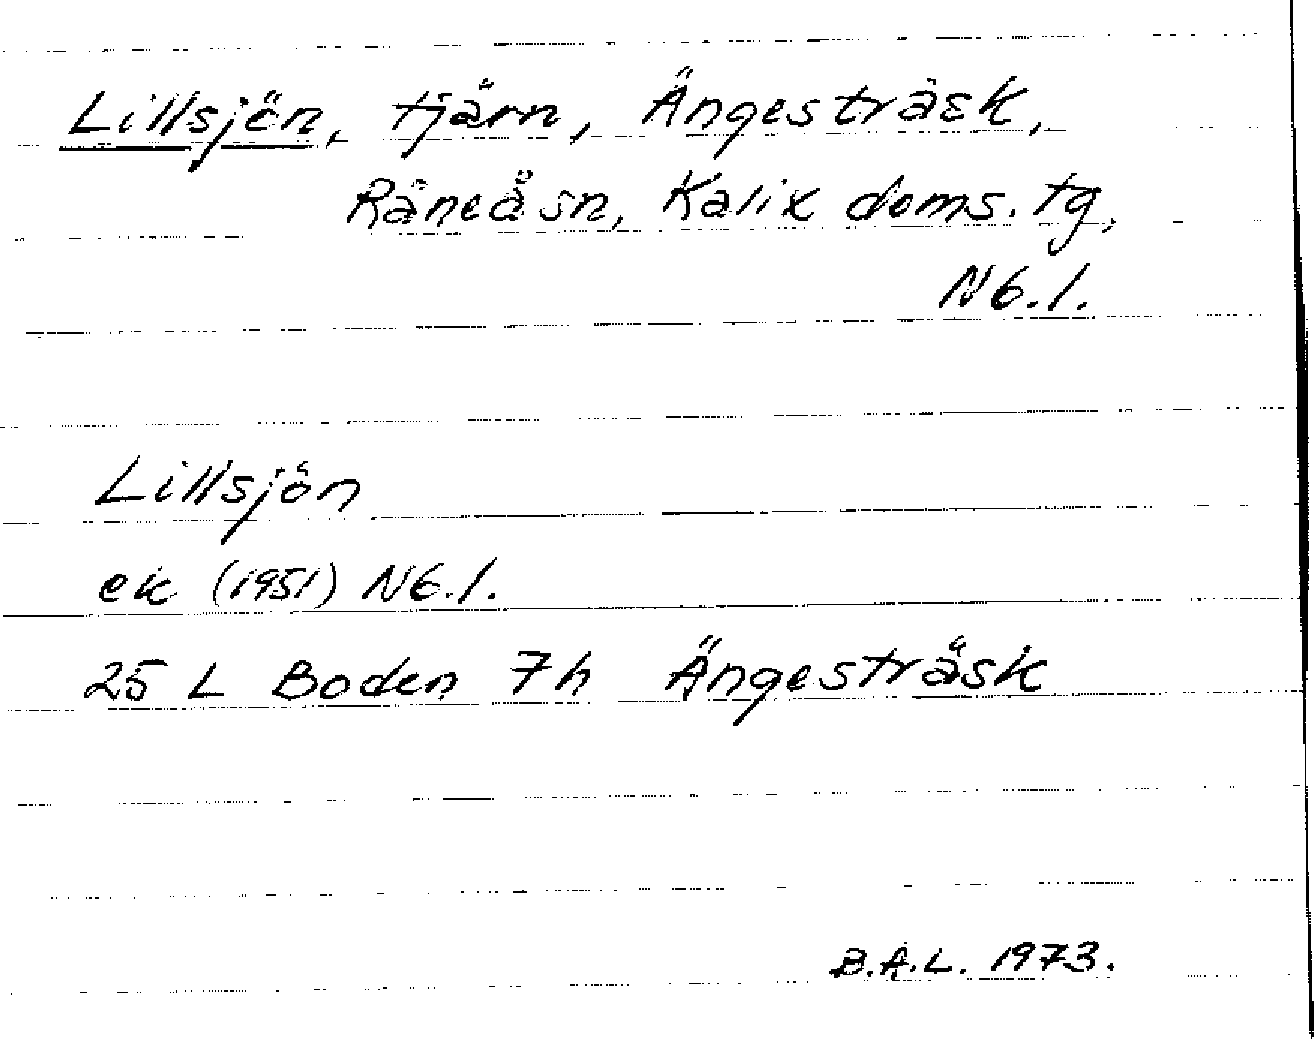 Lillsjön, tjärn, Ängesträsk,
Råneå sn, Kalix doms. tg,
Nb. l.
Lillsjön
ek (1951) Nb. l.
25 L Boden 7h Ängesträsk
B.A.L. 1973.